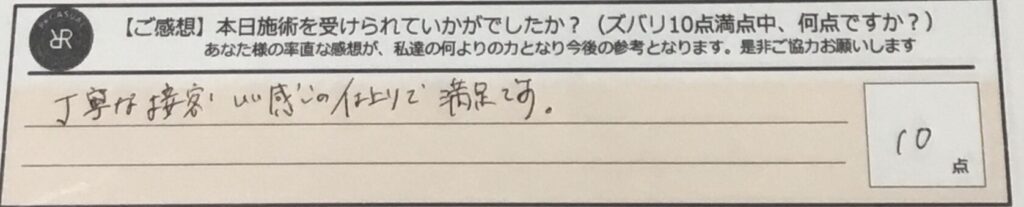 【ご感想】本日施術を受けられていかがでしたか？（ズバリ10点満点中、何点ですか？）
あなた様の率直な感想が、私達の何よりの力となり今後の参考となります。是非ご協力お願いします
丁寧な接客 いい感じの仕上りで満足です。
10
点